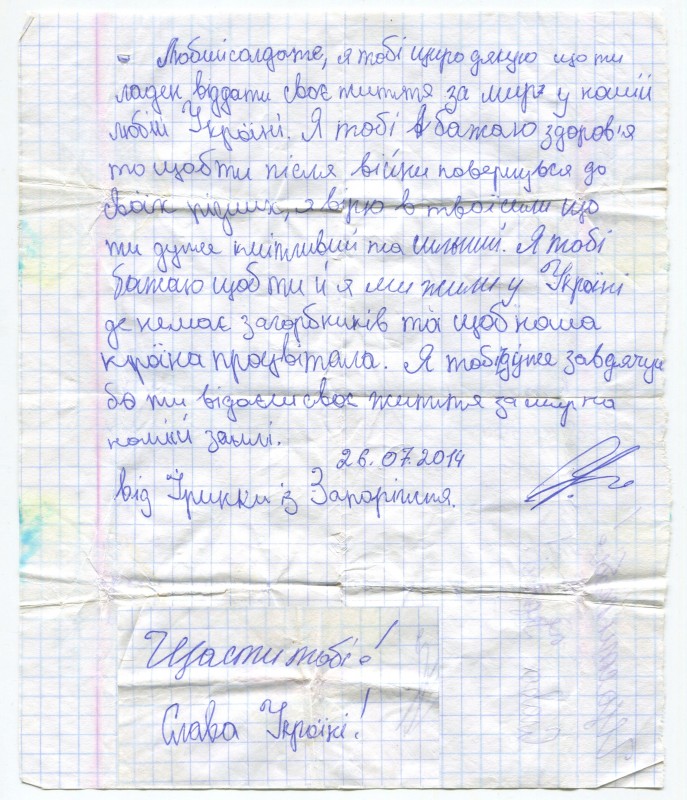 Любий солдате, я тобі щиро дякую що ти
ладен віддати своє життя за мир у нашій
любій Україні. Я тобі бажаю здоров'я
то щоб ти після війни повернувся до
своїх рідних, я вірю в твої сили що
ти дуже кмітливий та сильний. Я тобі
бажаю щоб ти й я ми жили у Україні
де немає загарбників та щоб наша
країна процвітала. Я тобі дуже завдячую
бо ти віддаєш своє життя за мир на
нашій землі.
26.07.2014
від Іринки із Запоріжжя.
Щасти тобі!
Слава Україні!